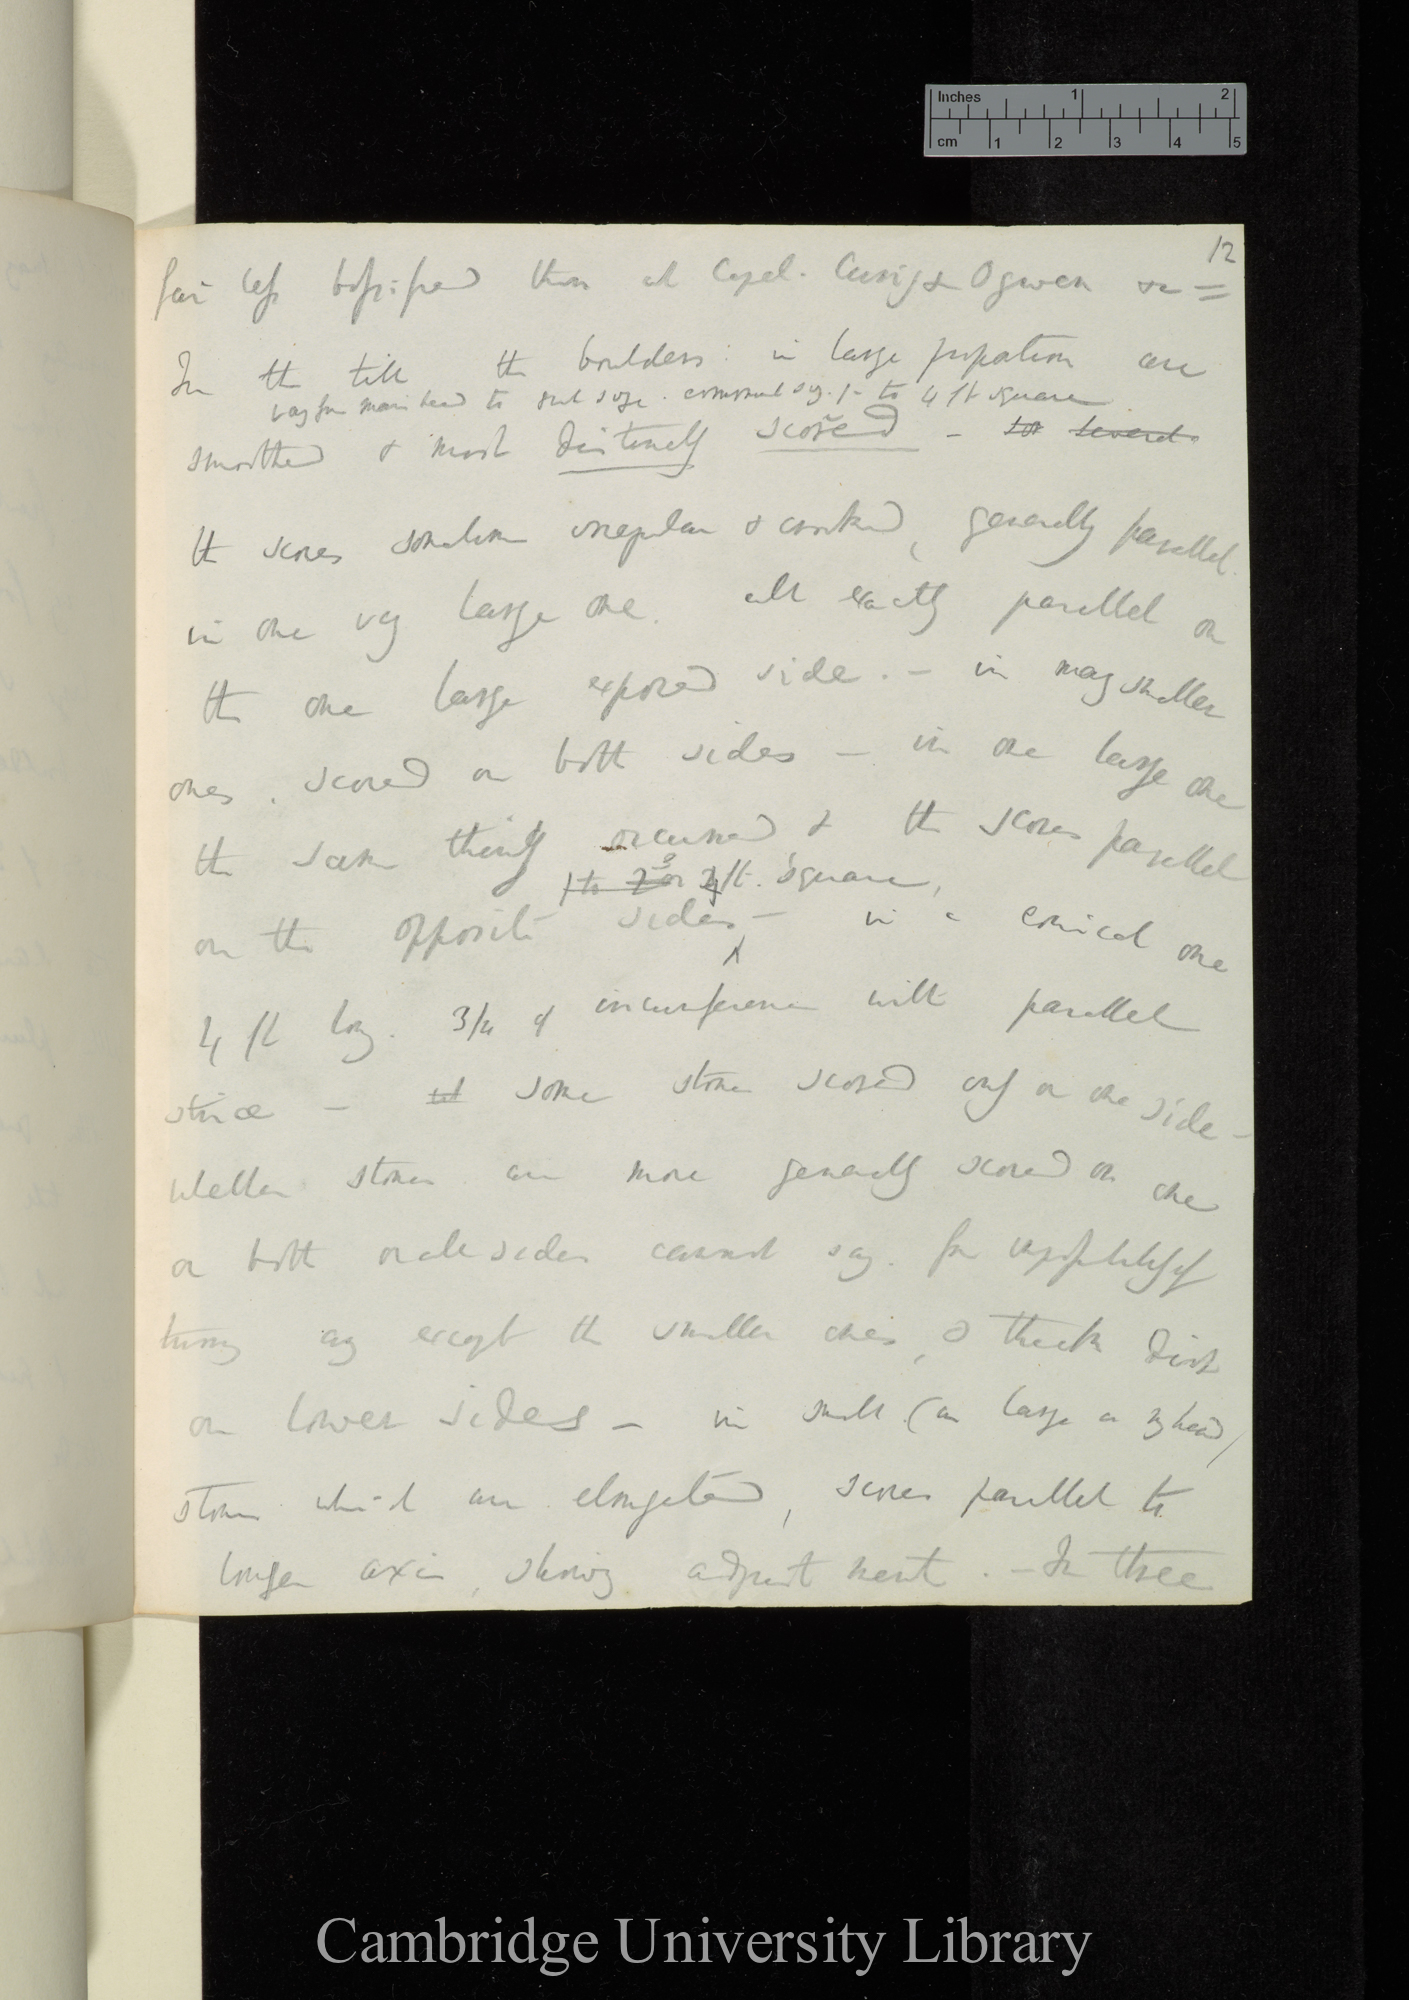 Inches 1 2
cm 1 2 3 4 5
12
far less bossified than at Capel. Curig & Ogwen &c =
In the till the boulders in large proportion are
vary from man's head to size. commonest sizes 1 to 4 ft square
smoothed & most distinctly scored – several
the scores sometimes irregular & crooked, generally parallel.
in one very large one. all exactly parallel on
the one large exposed side. – in many smaller
ones. scored on both sides – in one large one
the same thing occurred & the scores parallel
1 to 3 or 4 ft. square,
on the opposite sides – in a conical one
4 ft long. 3/4 of circumference with parallel
striæ – some stones scored only on one side –
Whether stones are more generally scored on one
or both sides cannot say. for impossibility of
turning any except the smaller ones, & thick dirt
on lower sides – in small (as large as my head)
stones which are elongated, scores parallel to
longer axis, showing adjustment. – In three
Cambridge University Library